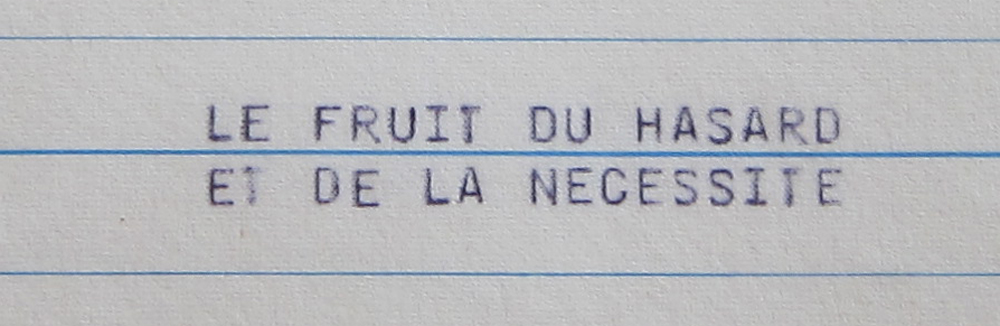 LE FRUIT DU HASARD
ET DE LA NECESSITE